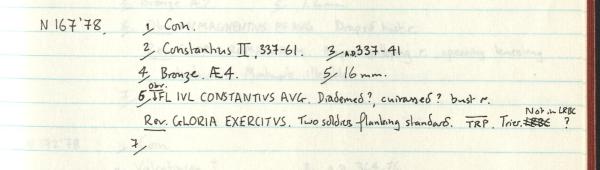 N 167'78. 1/ Coin.
2/ Constantius II, 337-61. 3/ A.D. 337-41
4/ Bronze. Æ4. 5/ 16mm.
6/ Obv. FL IVL CONSTANTIVS AVG. Diademed?, cuirassed? bust r.
Rev. GLORIA EXERCITVS. Two soldiers flanking standard. TRP. Trier. Not in LRBC ?
7/